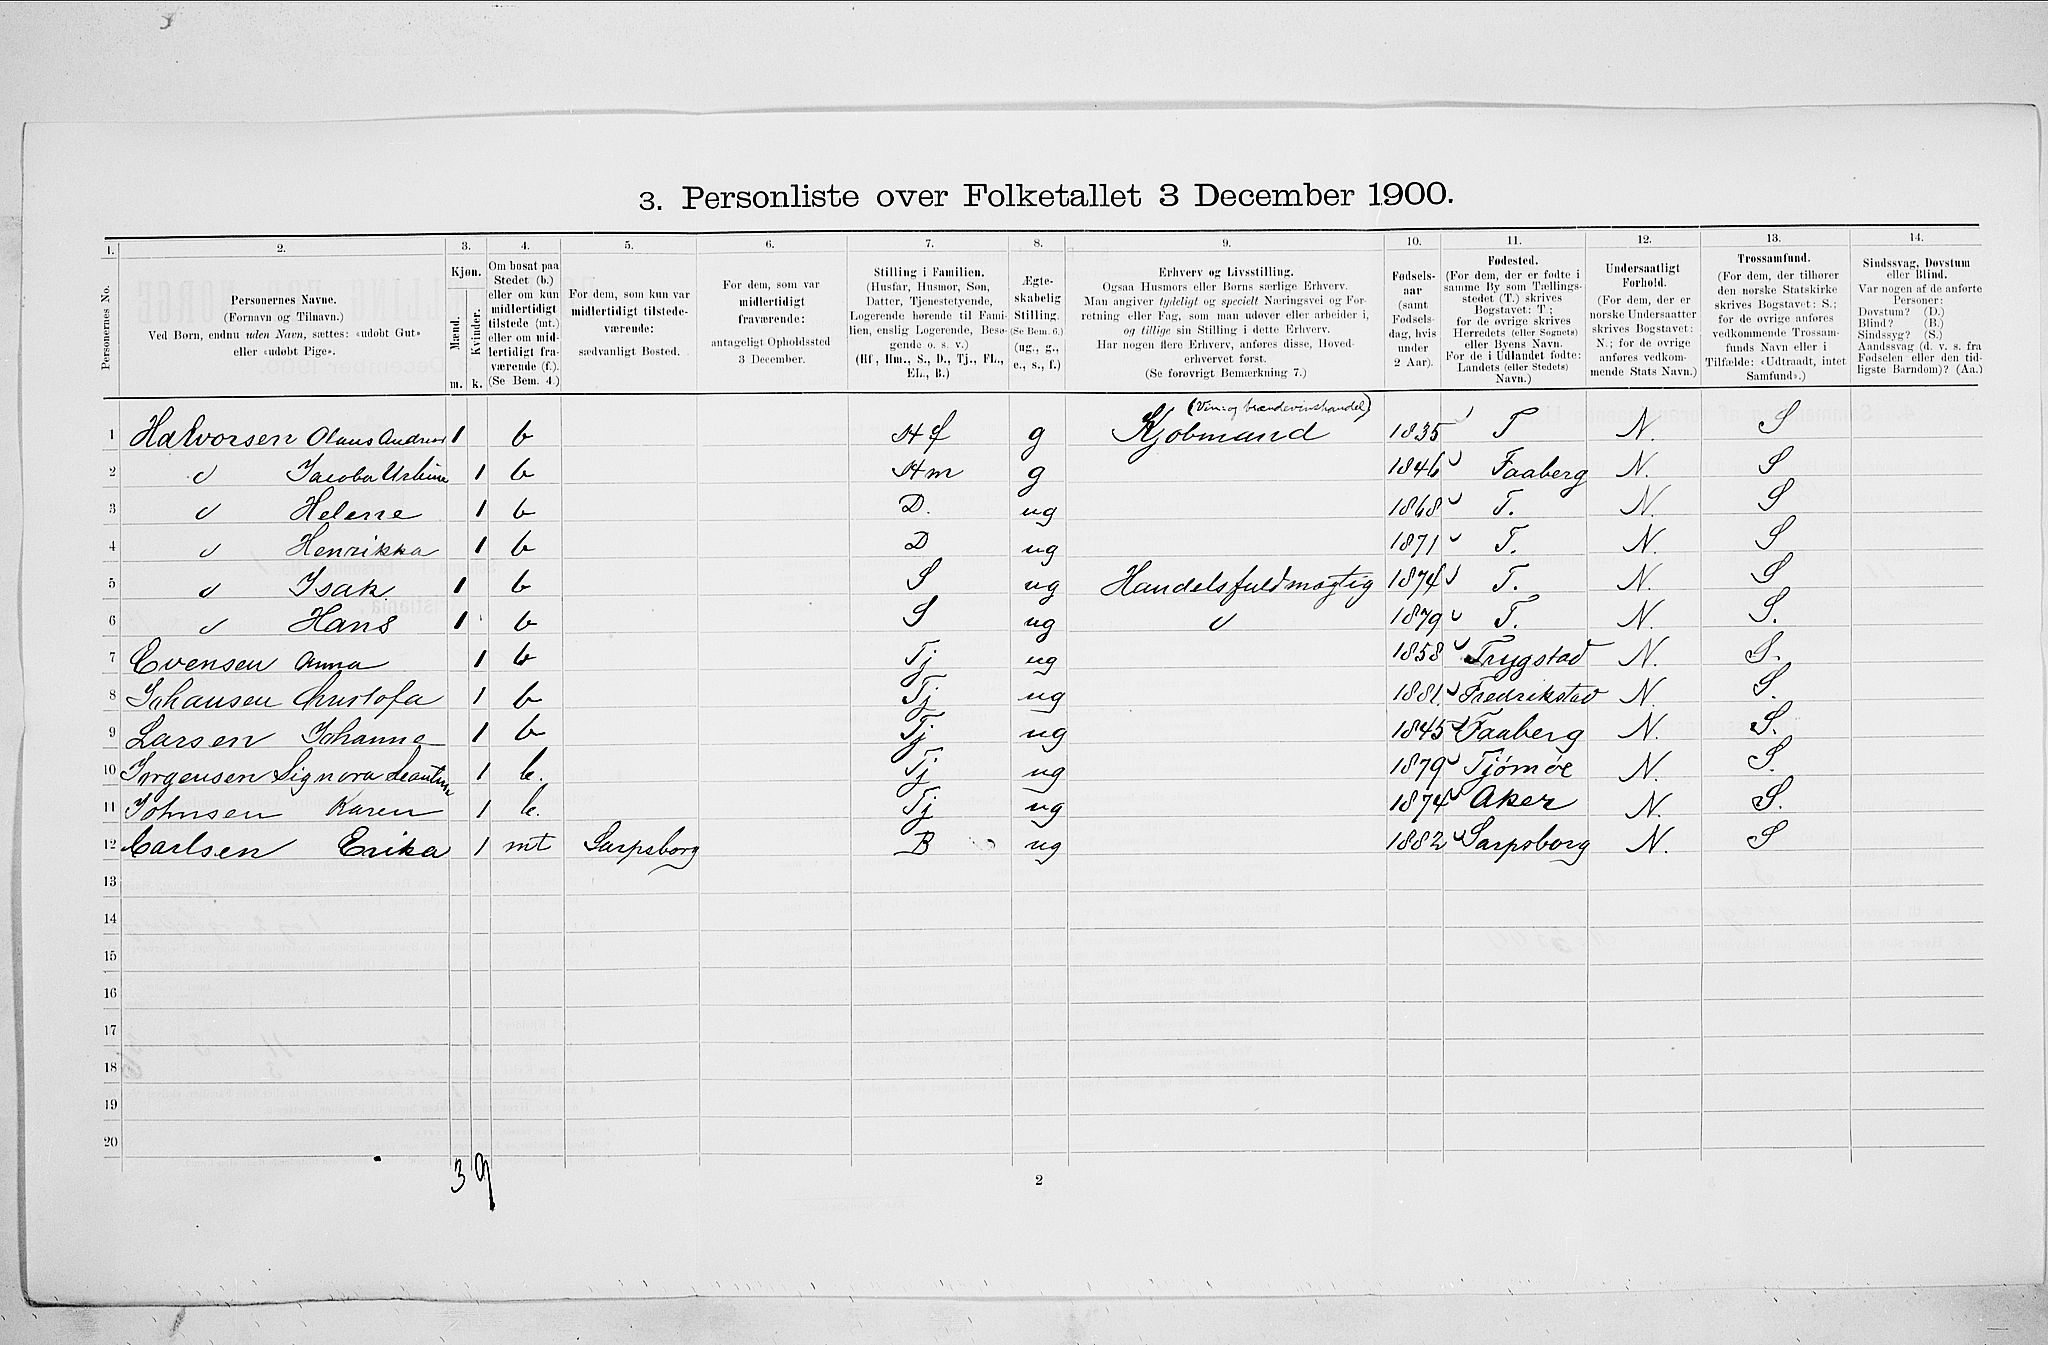 3. Personliste over Folketallet 3 December 1900.
1. 2. 3. 4. 5. 6. 7. 8. 9. 10. 11. 12. 13. 14.
Personernes No.
Personernes Navne.
(Fornavn og Tilnavn.)
Ved Børn, endnu uden Navn, sættes: «udøbt Gut»
eller «udøbt Pige».
Kjøn.
Mænd. Kvinder.
m. k.
Om bosat paa
Stedet (b.)
eller om kun
midlertidigt
tilstede (mt.)
eller om mid-
lertidigt fra-
værende (f.).
(Se Bem. 4.)
For dem, som kun var
midlertidigt tilstede-
værende:
sædvanligt Bosted.
For dem, som var
midlertidigt
fraværende:
antageligt Opholdssted
3 December.
Stilling i Familien.
(Husfar, Husmor, Søn,
Datter, Tjenestetyende,
Logerende hørende til Fami-
lien, enslig Logerende, Besø-
gende o. s. v.)
(Hf, Hm., S., D., Tj., FL.,
EL., B.)
Ægte-
skabelig
Stilling.
(Se Bem. 6.)
(ug., g.,
e., s., f.)
Erhverv og Livsstilling.
Ogsaa Husmors eller Børns særlige Erhverv.
Man angiver tydeligt og specielt Næringsvei og For-
retning eller Fag, som man udøver eller arbeider i,
og tillige sin Stilling i dette Erhverv.
Har nogen flere Erhverv, anføres disse, Hoved-
erhvervet først.
(Se forøvrigt Bemærkning 7.)
Fødsels-
aar
(samt
Fødsels-
dag, hvis
under
2 Aar).
Fødested.
(For dem, der er fødte i
samme By som Tællings-
stedet (T.) skrives
Bogstavet: T;
for de øvrige skrives
Herredets (eller Sognets)
eller Byens Navn.
For de i Udlandet fødte:
Landets (eller Stedets)
Navn.)
Undersaatligt
Forhold.
(For dem, der er
norske Undersaatter
skrives Bogstavet:
N.; for de øvrige
anføres vedkom-
mende Stats Navn.)
Trossamfund.
(For dem, der tilhører
den norske Statskirke
skrives Bogstavet: S.;
for de øvrige anføres
vedkommende Trossam-
funds Navn eller i
Tilfælde: «Udtraadt, intet
Samfund».)
Sindssvag, Døvstum
eller Blind.
Var nogen af de anførte
Personer:
Døvstum? (D.)
Blind? (B.)
Sindssyg? (S.)
Aandssvag (d. v. s. fra
Fødselen eller den tid-
ligste Barndom)? (Aa.)
(Vin- og brændevinshandel)
1 Halvorsen Olaus Andreas 1 b Hf g Kjøbmand 1835 T N. S
2 " Jacoba 1 b Hm g 1846 Faaberg N. S
3 " Helene 1 b D. ug 1868 T. N. S
4 " Henrikka 1 b D ug 1871 T. N. S
5 " Isak 1 b S ug Handelsfuldmægtig 1874 T. N. S
6 " Hans 1 b S ug " 1879 T. N. S.
7 Evensen Anna 1 b Tj ug 1858 Trygstad N. S.
8 Johansen Christofa 1 b Tj ug 1881. Fredrikstad N. S.
9 Larsen Johanne 1 b Tj ug 1845 Faaberg N. S.
10 Jørgensen Signora 1 b. Tj ug 1879 Tjømøe N. S.
11 Johnsen Karen 1 b. Tj ug 1874 Aker N. S.
12 Carlsen Erika 1 mt Sarpsborg B ug 1882 Sarpsborg N. S
13
14
15
16
17
18
19
20
3 9
2